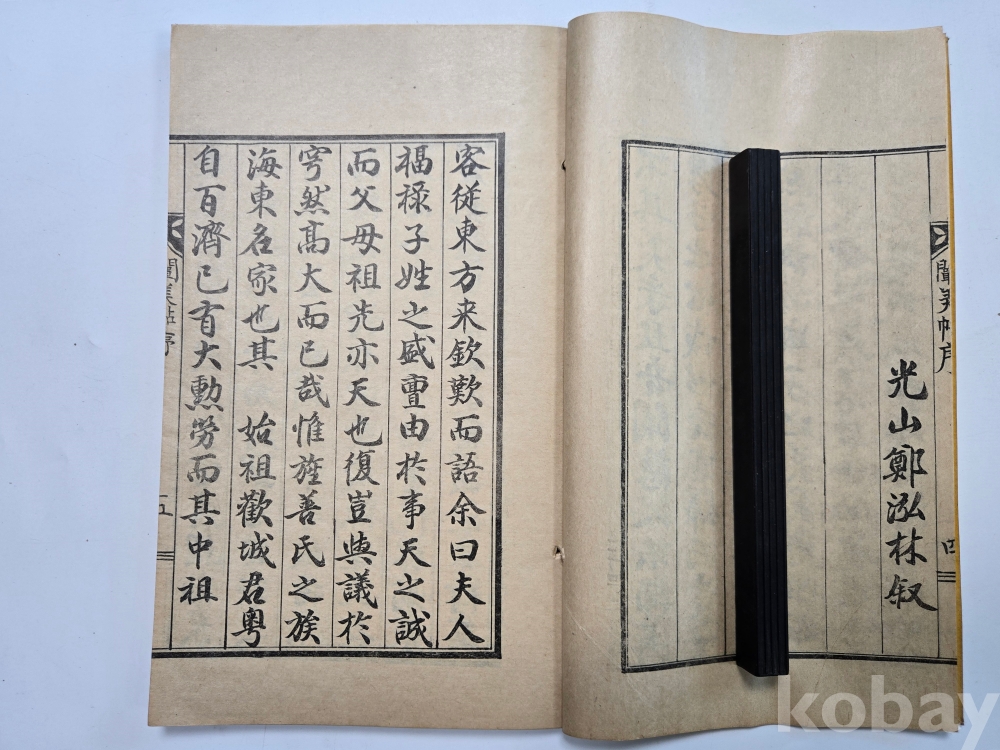 闡美帖序 四
光山鄭泓林叙
客從東方来欽歎而語余曰夫人
福祿子姓之盛亶由於事天之誠
而父母祖先亦天也復豈與議於
穹然高大而已哉惟旌善氏之族
海東名家也其 始祖歡城君粤
自百濟已有大勳勞而其中祖
闡美帖序 五
kobay